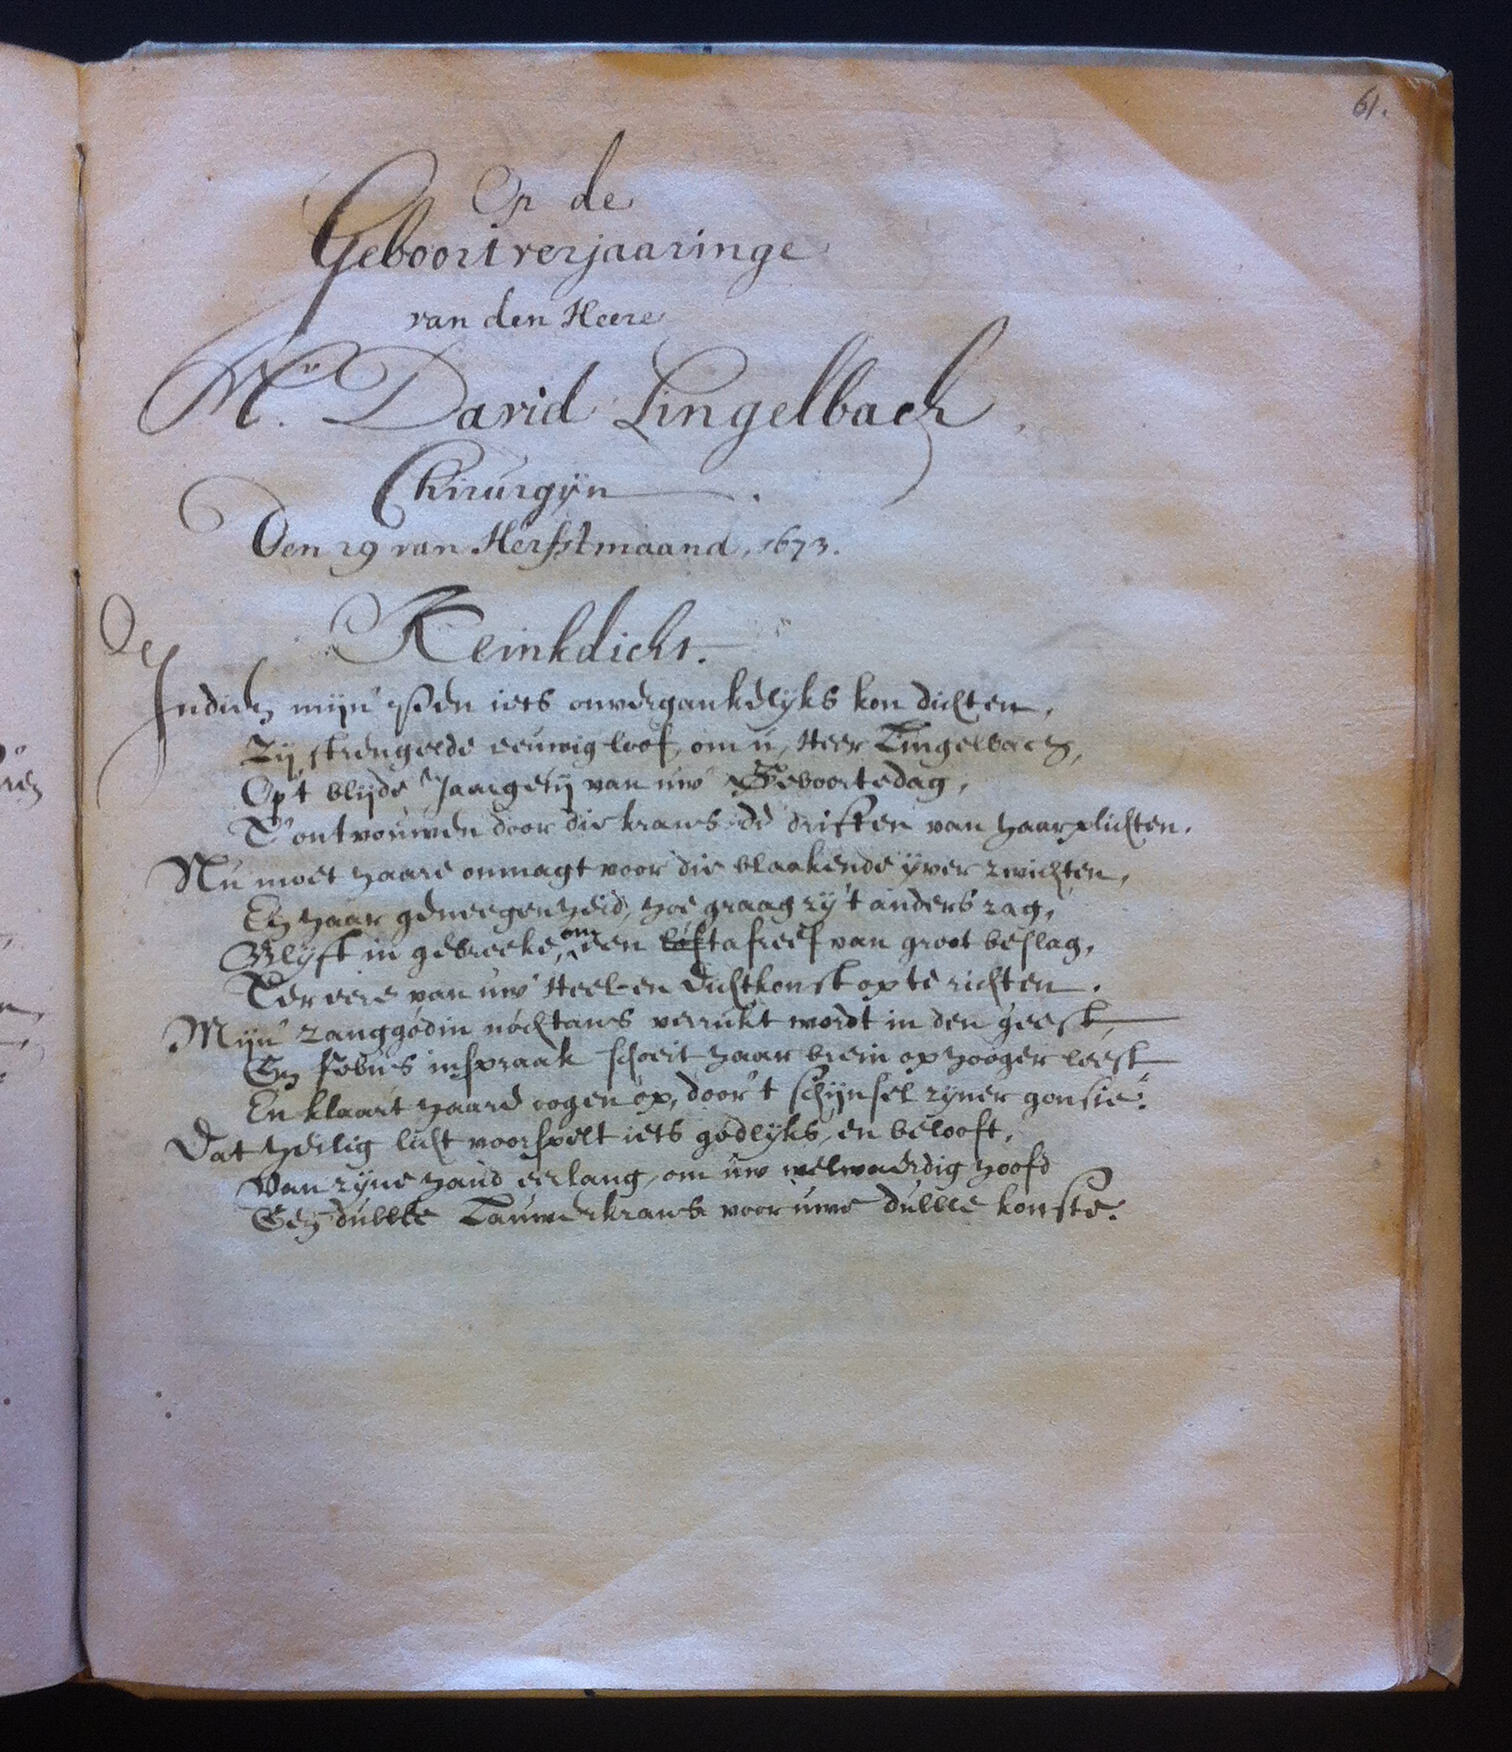 61.
Op de
Geboortverjaaringe
van den Heere
Mr. David Lingelbach,
Chirurgyn.
Den 29 van Herfstmaand, 1673.
Kelinkdicht.
Indien mijn' pen iets onvergankelyks kon dichten,
Zij strengelde eeuwig loof, om u, Heer Lingelbach,
Op 't blyde Jaargetij van uw Geboortedag,
T' ontvouwen door die krans de driften van haar plichten.
Nu moet haare onmagt voor die blaakende yver zwichten,
En haar geneegenheid, hoe graag zy 't anders zag,
Blyft in gebreeke, om een tafreel van groot beslag,
Ter eere van uw' Heel- en Dichtkonst op te richten.
Mijn' zanggodin nochtans verrukt wordt in den geest,
En Febus inspraak schoeit haar brein op hooger leest
En klaart haare oogen op, door 't schijnsel zyner gonste.
Dat heilig licht voorspelt iets godlyks, en belooft,
Van zyne hand eerlang, om uw welwaerdig hoofd
Een dubble Lauwerkrans voor uwe dubble konste.